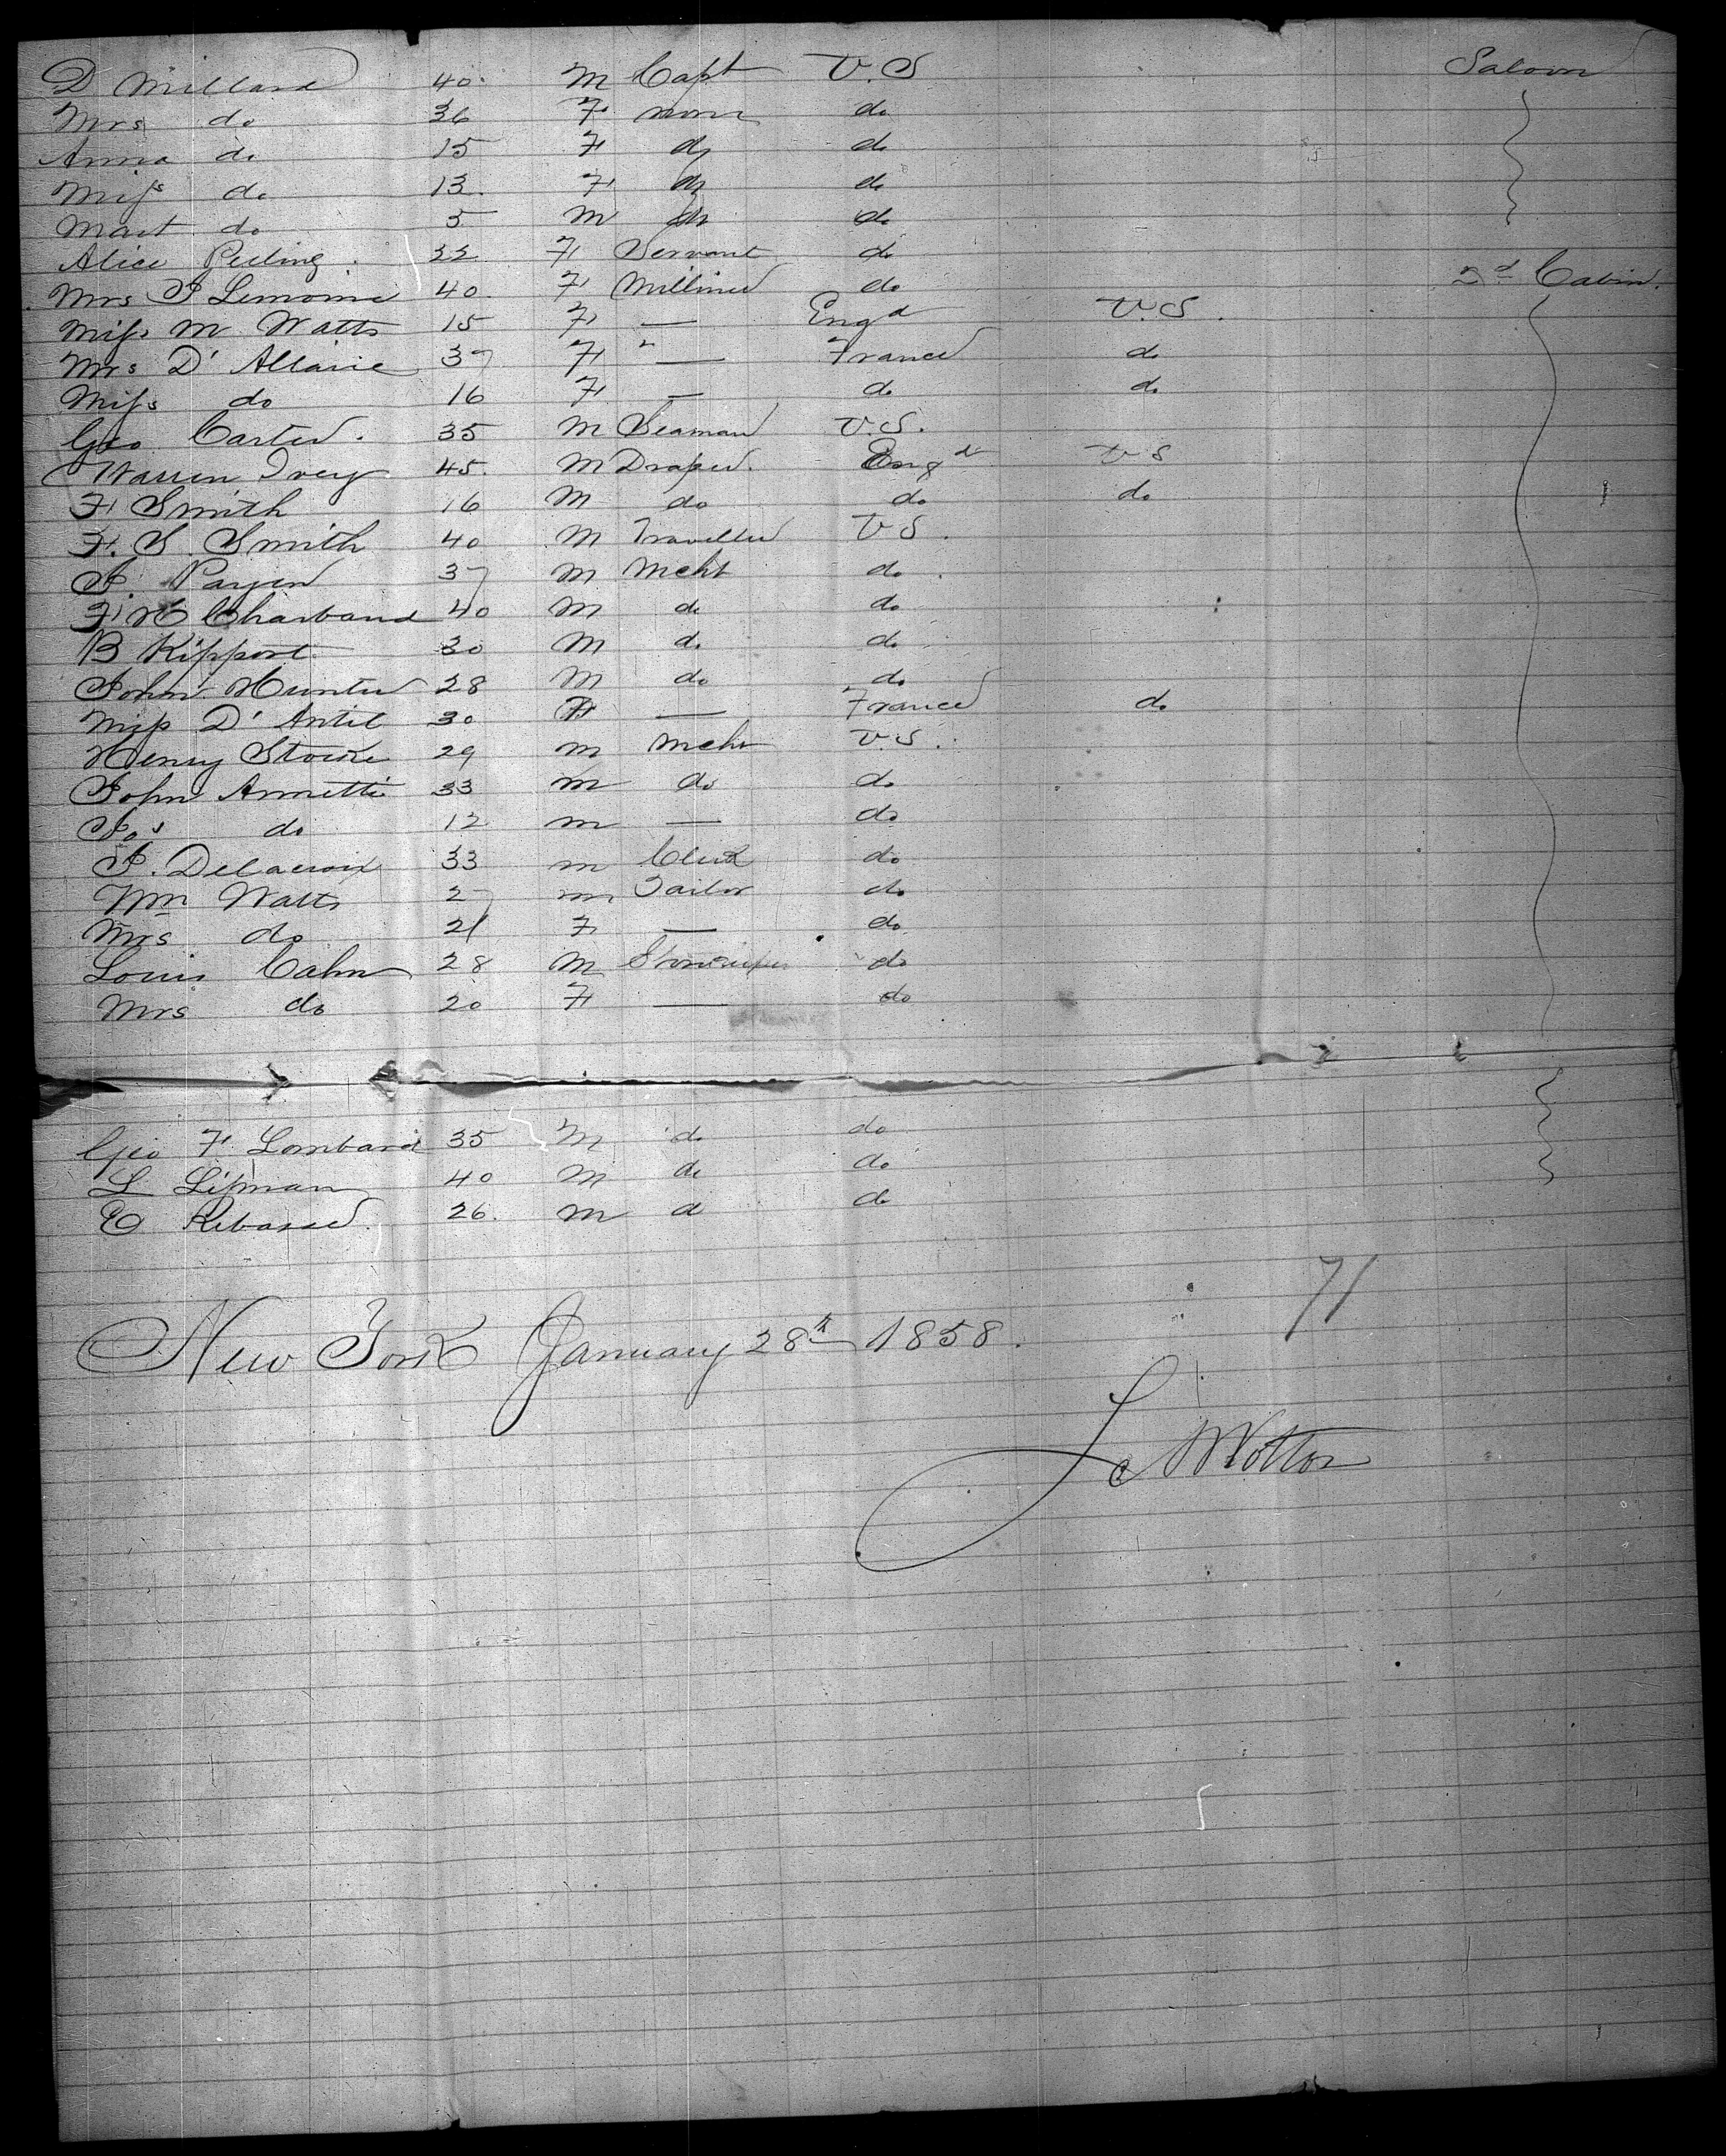 D Millard 40 M Capt U.S Saloon
Mrs do 36 F none do
Anna do 15 F do do
Miss do 13 F do do
Mast do 5 M do do
Alice 22 F Servant do
Mrs J Lemoine 40 F Milliner do 2d Cabin.
Miss M Watts 15 F — Engd U.S.
Mrs D'Allarie 37 F " — France do
Miss do 16 F — do do
Geo Carter. 35 M Seaman U.S.
Warren Ivey 45. M Draper. Engd U S
F Smith 16 M do do do
F. S. Smith 40 M Traveller U S.
A. Payen 37 M Mcht do
F H Charbaud 40 M do do
B Kipport 30 M do do
John Hunter 28 M do do
Miss D'Antil 30 F — France do
Henry Stocke 29 M Mcht U.S.
John Annette 33 M do do
Jos do 12 M — do
J. Delacroix 33 M Clerk do
Wm Watts 27 M Tailor do
Mrs do 21 F — do
Louis Cahn 28 M do
Mrs do 20 F — do
Geo F Lombard 35 M do do
L Lipman 40 M do do
E 26. M do do
71
New York January 28th 1858.
Wotton